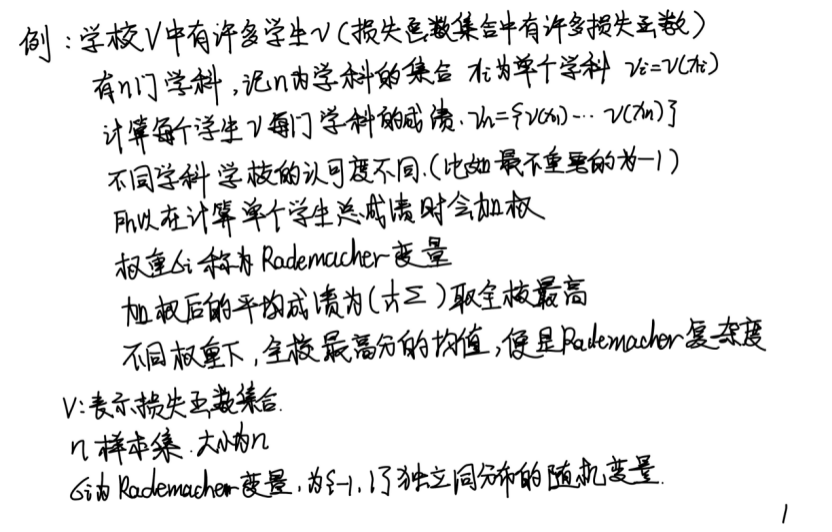 例：学校V中有许多学生v（损失函数集合中有许多损失函数）
有n门学科，记n为学科的集合 xi为单个学科 vi=v(xi)
计算每个学生v每门学科的成绩．vn={v(x1)…v(xn)}
不同学科学校的认可度不同．（比如最不重要的为-1）
所以在计算单个学生总成绩时会加权
权重σi称为Rademacher变量
加权后的平均成绩为（1/n Σ）取全校最高
不同权重下，全校最高分的均值，便是Rademacher复杂度
V：表示损失函数集合．
n 样本集．大小为n
σi为Rademacher变量．为{-1，1}独立同分布的随机变量．
1